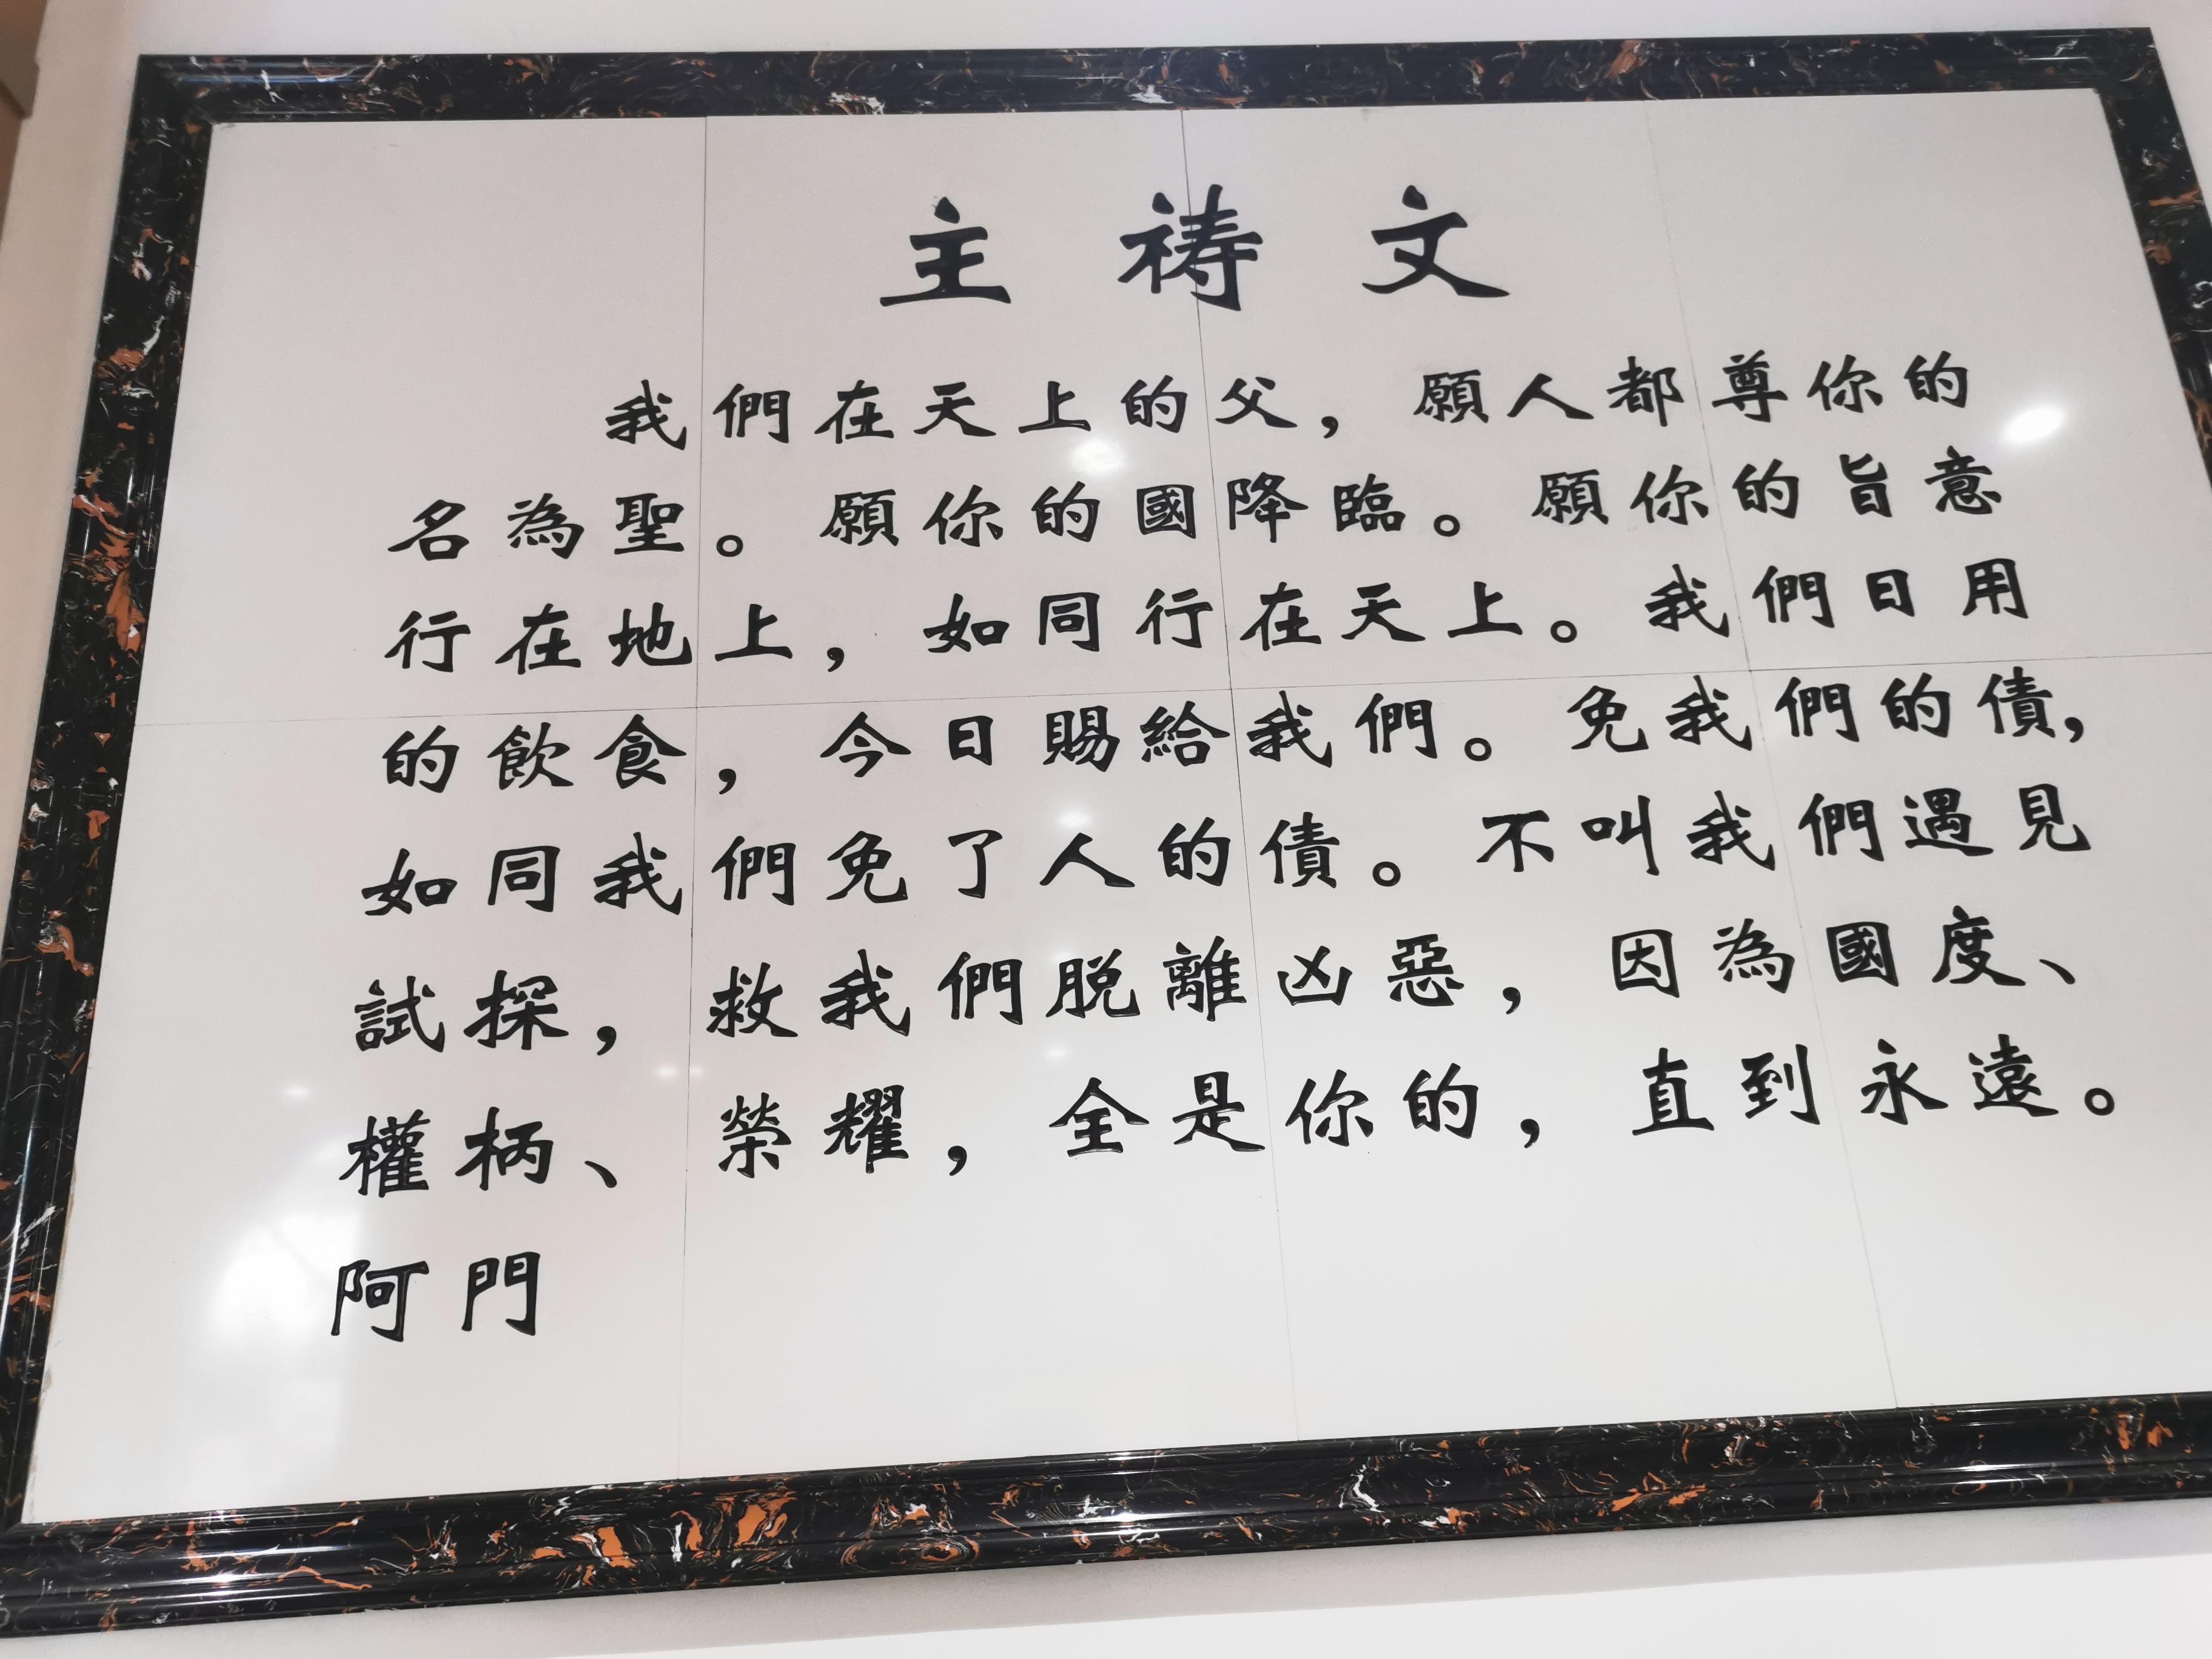 主祷文
我們在天上的父，願人都尊你的
名為聖。願你的國降臨。願你的旨意
行在地上，如同行在天上。我們日用
的飲食，今日賜給我們。免我們的債，
如同我們免了人的債。不叫我們遇見
試探，救我們脫離凶惡，因為國度、
權柄、榮耀，全是你的，直到永遠。
阿門